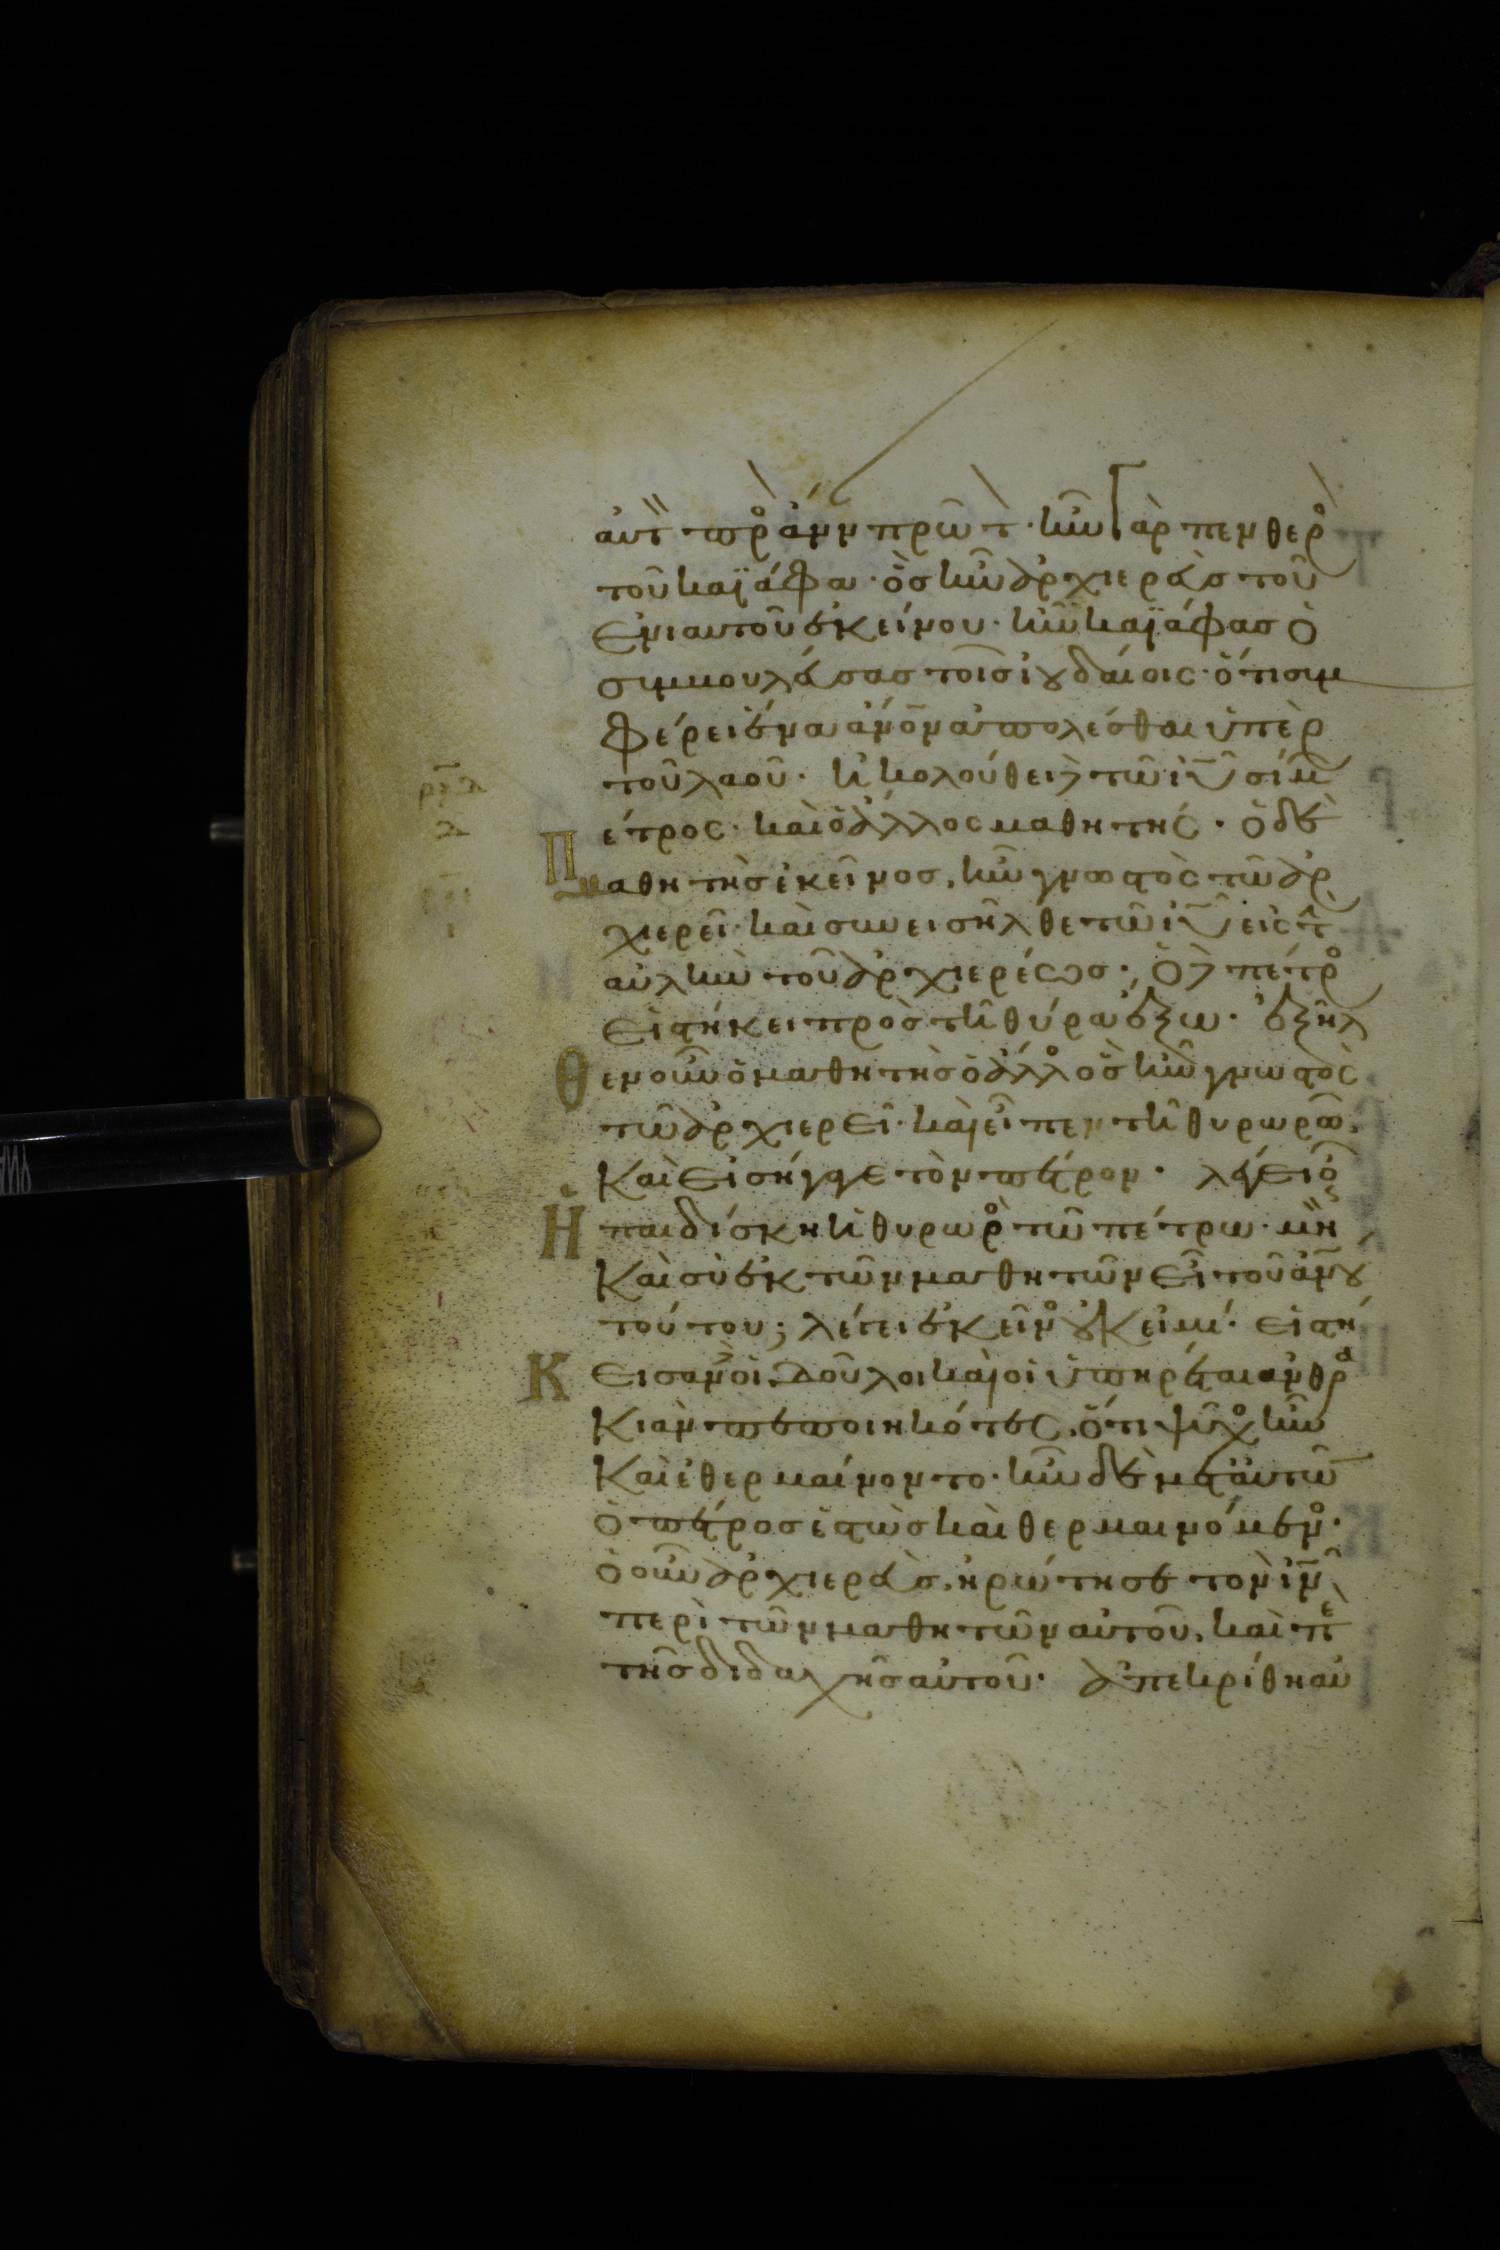 αὐτ πρ ἄνν πρῶτ· ἦν γὰρ πενθερ
τοῦ καϊάφα· ὃς ἦν ἀρχιερεὺς τοῦ
ἐνιαυτοῦ ἐκείνου· ἦν καϊάφας ὁ
συμβουλεύσας τοῖς ἰουδαίοις· ὅτι συμ
φέρει ἕνα ἄνον ἀπολέσθαι ὑπὲρ
τοῦ λαοῦ· ἠκολούθει δὲ τῶ ιυ σίμ
Π έτρος· καὶ ὁ ἄλλος μαθητής· ὁ δὲ
μαθητὴς ἐκεῖνος, ἦν γνωστὸς τῶ ἀρ
χιερεῖ· καὶ συνεισῆλθε τῶ ιυ εἰς τ
αὐλὴν τοῦ ἀρχιερέως· ὁ δὲ πέτρ
εἱστήκει πρὸς τῆ θύρα ἔξω· ἐξῆλ
Θ εν οὖν ὁ μαθητὴς ὁ ἄλλο ὃς ἦν γνωστὸς
τῶ ἀρχιερεῖ· καὶ εἶπεν τῆ θυρωρῶ,
καὶ εἰσήγαγε τὸν πέτρον· λέγει ὁ
Ἡ παιδίσκη ἡ θυρωρὸ τῶ πέτρω· μὴ
καὶ σὺ ἐκ τῶν μαθητῶν εἶ τοῦ ἀνου
τούτου; λέγει ἐκεῖνο οὐκ εἰμί· εἱστή
Κ εισαν δὲ οἱ δοῦλοι καὶ οἱ ὑπηρέται ἀνθρα
κιὰν πεποιηκότες, ὅτι ψῦχο ἦν
καὶ ἐθερμαίνοντο· ἦν δὲ μετ' αὐτῶ
ὁ πέτρος ἑστὼς καὶ θερμαινόμενο·
ὁ οὖν ἀρχιερεὺς, ἠρώτησε τὸν ιν
περὶ τῶν μαθητῶν αὐτοῦ, καὶ πε
τῆς διδαχῆς αὐτοῦ· ἀπεκρίθη αὐ